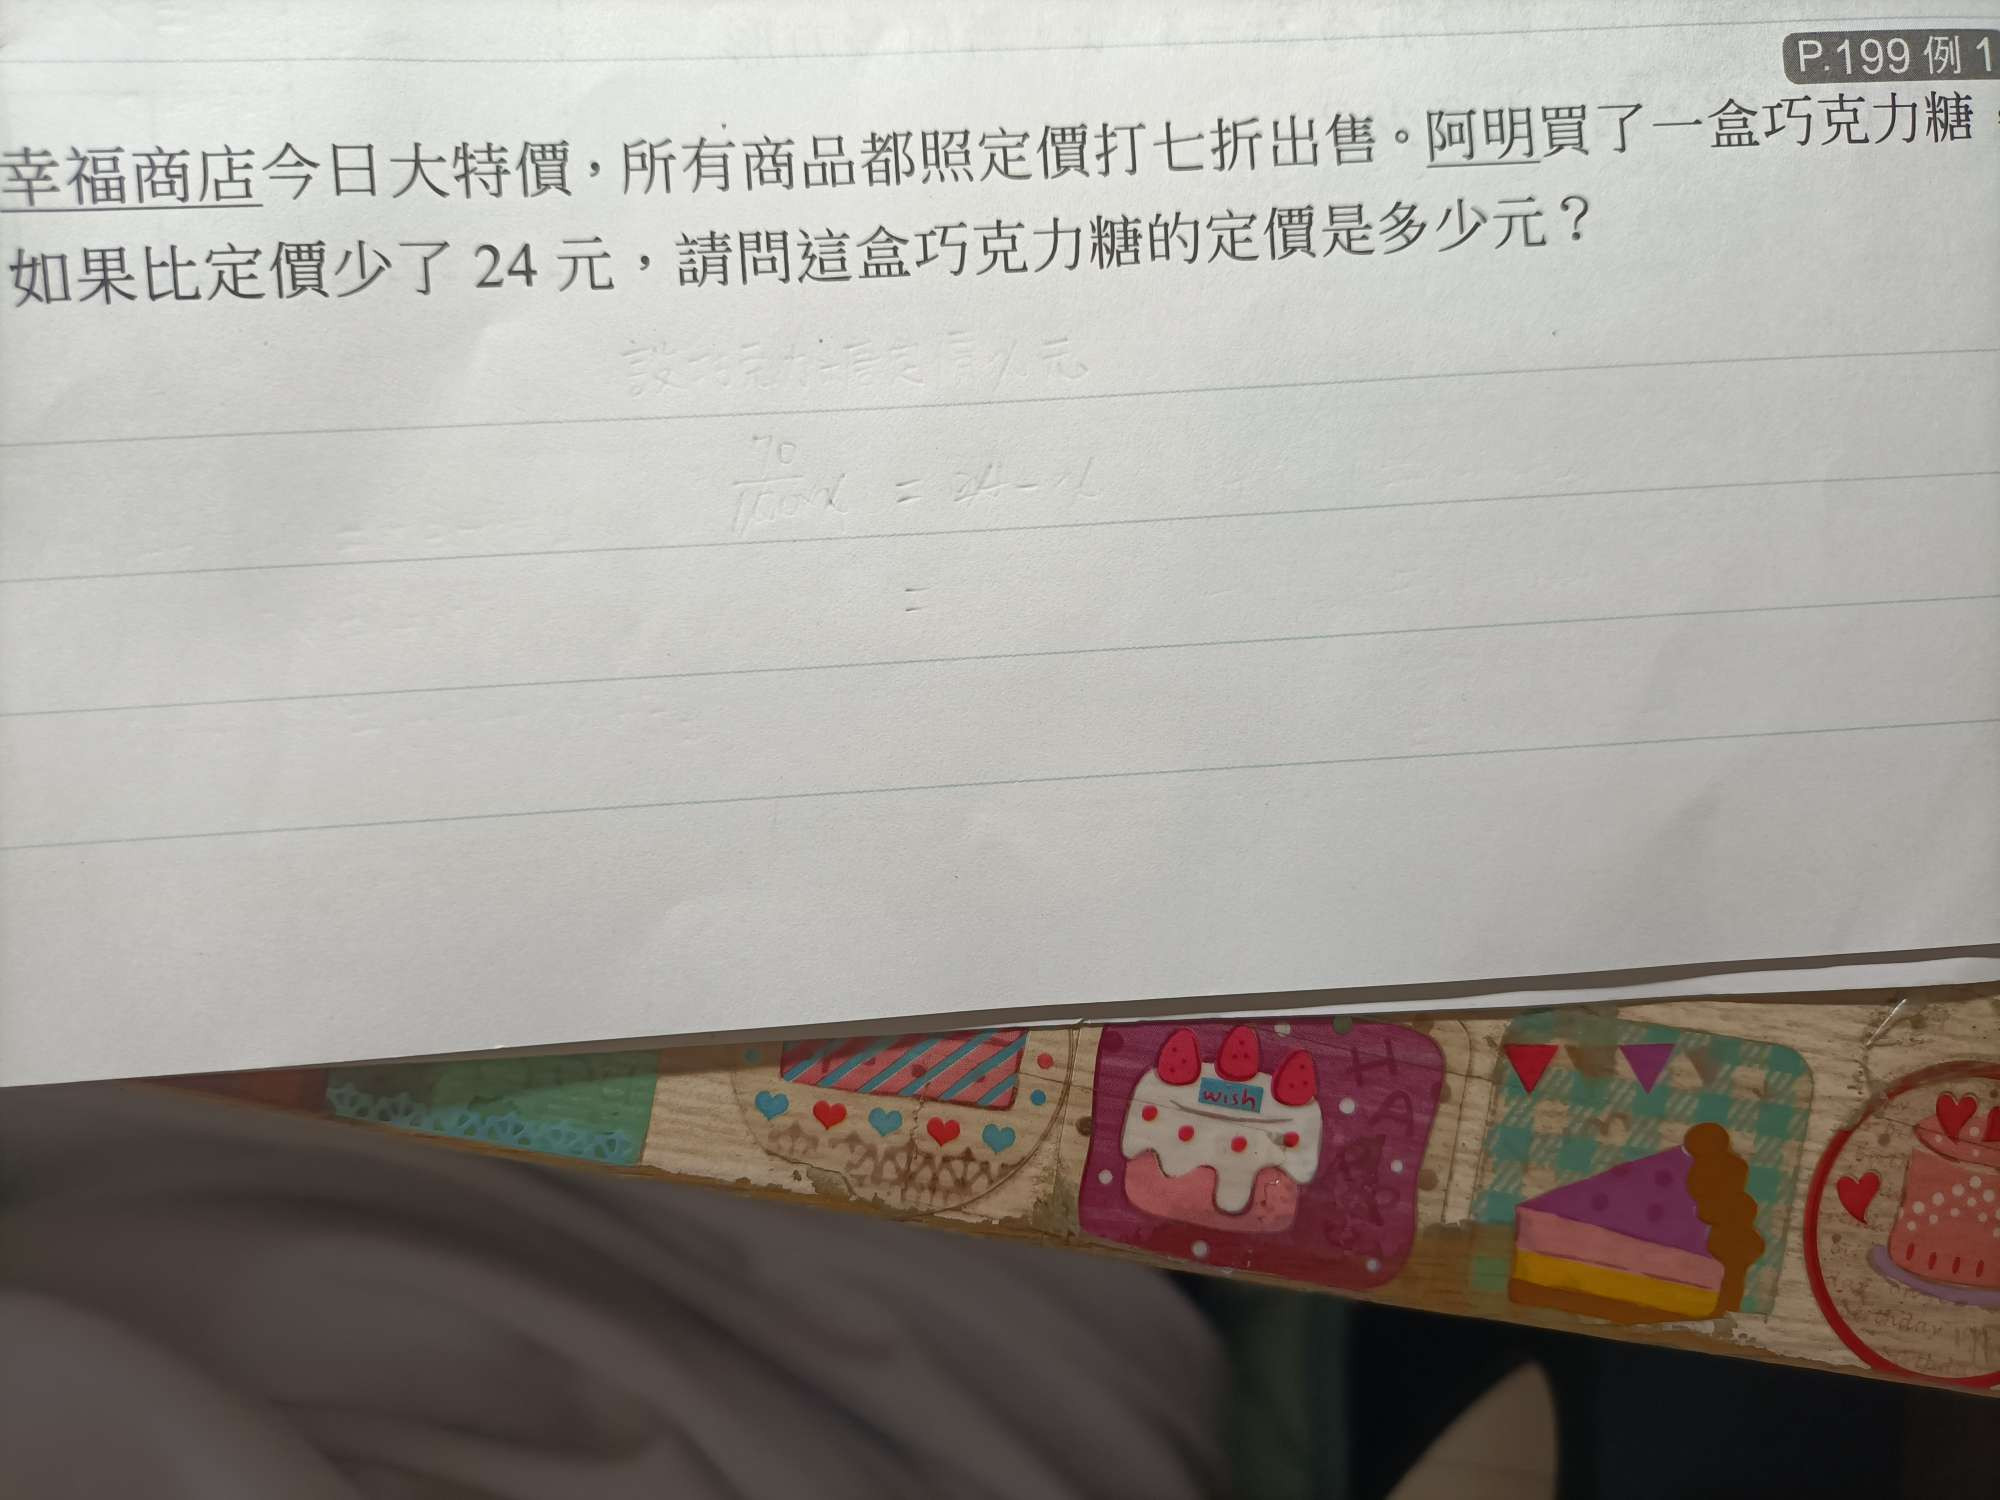 P.199 例 1
幸福商店今日大特價，所有商品都照定價打七折出售。阿明買了一盒巧克力糖，
如果比定價少了 24 元，請問這盒巧克力糖的定價是多少元？
設巧克力糖定價x元
= 24 - x
=
wish